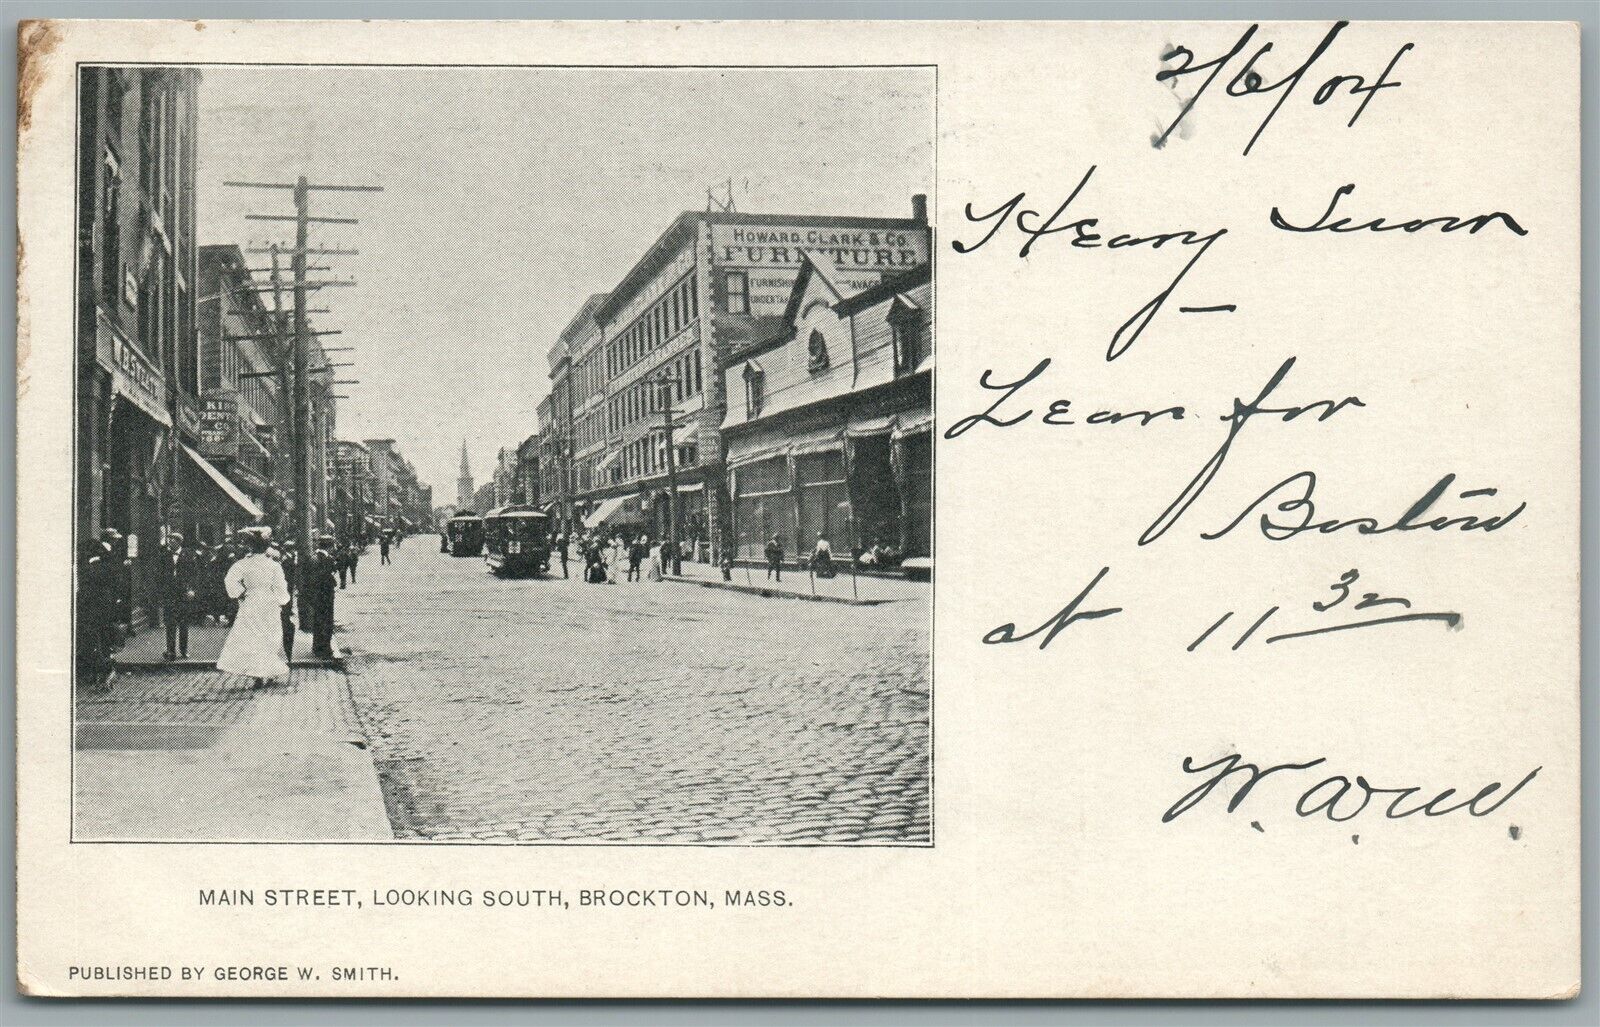 2/6/04
Heavy Snow
—
Leave for
Boston
at 11 30
HOWARD, CLARK & CO.
FURNITURE
MAIN STREET, LOOKING SOUTH, BROCKTON, MASS.
PUBLISHED BY GEORGE W. SMITH.